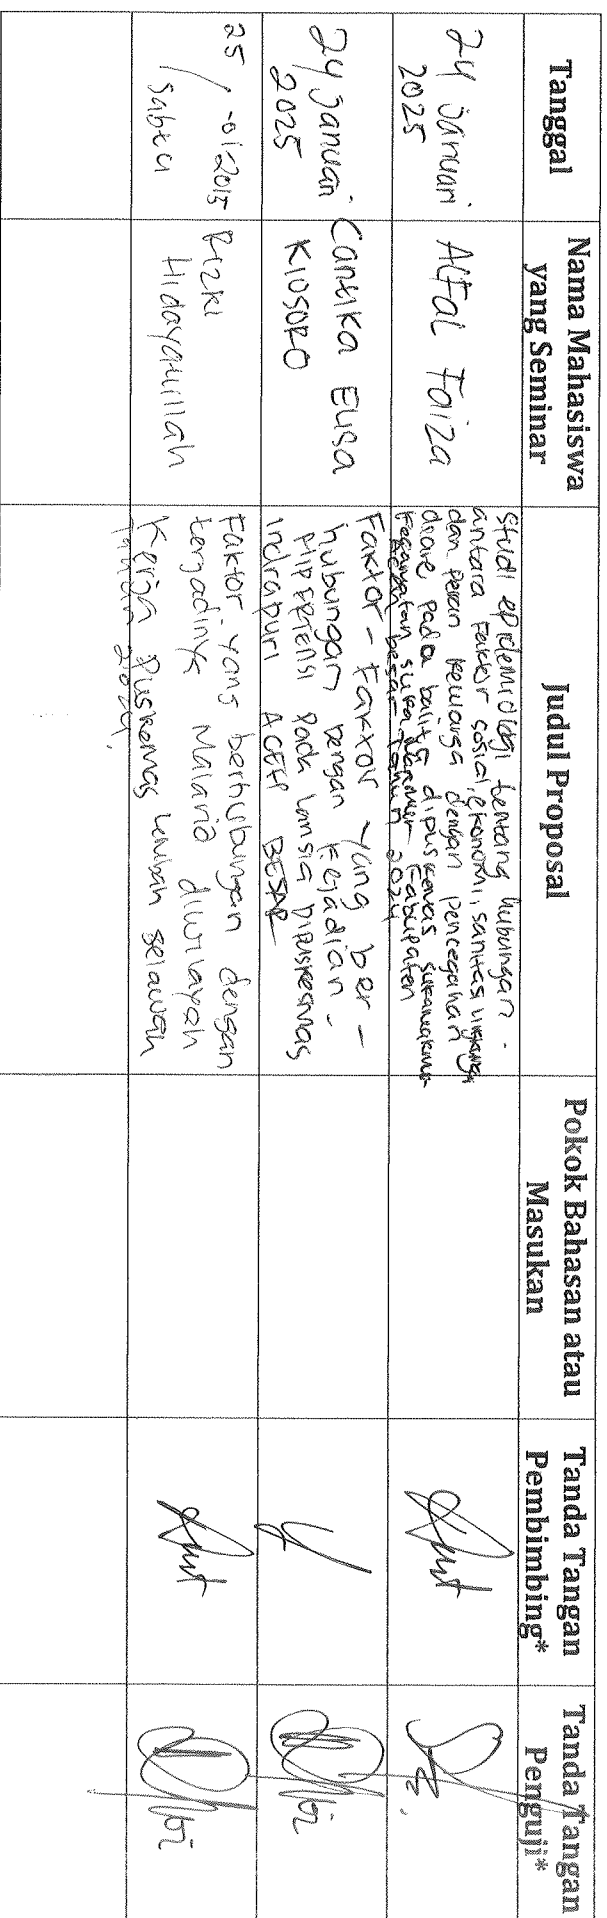 Tanggal
Nama Mahasiswa
yang Seminar
Judul Proposal
Pokok Bahasan atau
Masukan
Tanda Tangan
Pembimbing*
Tanda Tangan
Penguji*
24 Januari
2025
Alfal Faiza
Studi epidemiologi tentang hubungan -
antara Faktor sosial, ekonomi, sanitasi
dan peran keluarga dengan pencegahan
diare Pada balita dipuskesmas sukamakmur
Kecamatan suka makmur Kabupaten
besar Tahun 2024
24 Januari
2025
Cantika Elisa
KIOSORO
Faktor - Faktor yang ber -
hubungan dengan Kejadian -
HIPERTENSI Pada Lansia DIPUSKESMAS
Indrapuri ACEH BESAR
25 / -01-2015
Sabtu
Rizki
Hidayatullah
Faktor yang berhubungan dengan
tergadinya Malaria diwilayah
Kerja Puskesmas Lembah selawah
Tahun 2024.